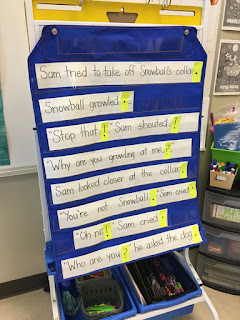 Sam tried to take off Snowball's collar.
Snowball growled.
"Stop that!" Sam shouted.
"Why are you growling at me?"
Sam looked closer at the collar.
"You're not Snowball." Sam cried.
"Oh no!" Sam cried.
"Who are you?" he asked the dog.